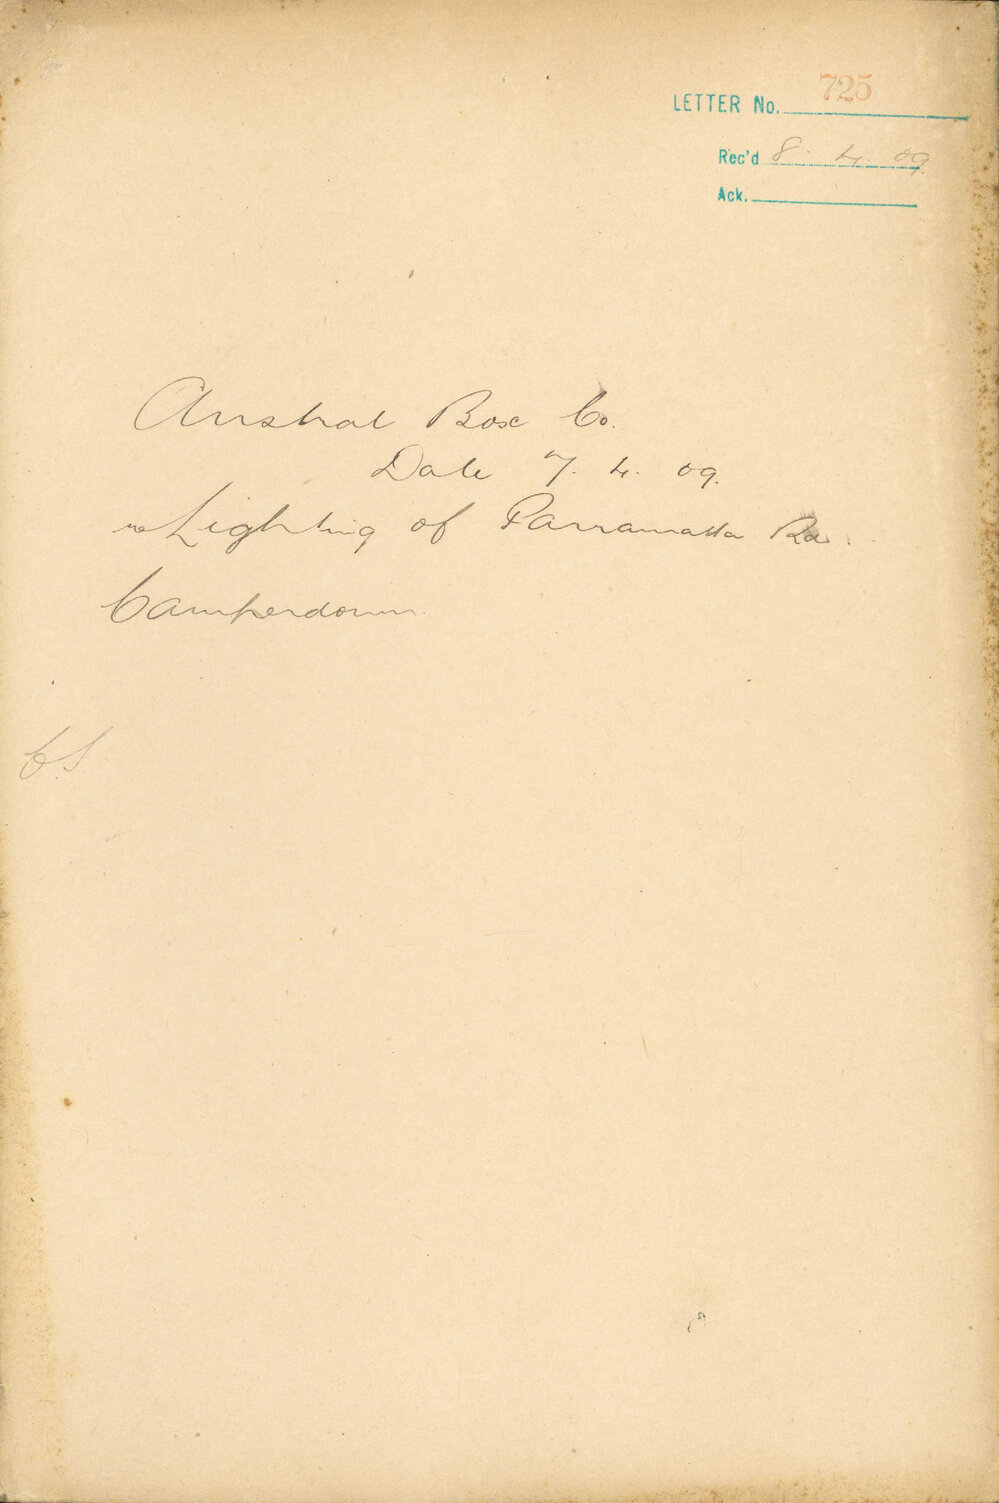 LETTER No. 725
Rec'd 8. 4. 09
Ack.
Austral Box Co.
Date 7. 4. 09.
re Lighting of Parramatta Rd.
Camperdown.
C.S